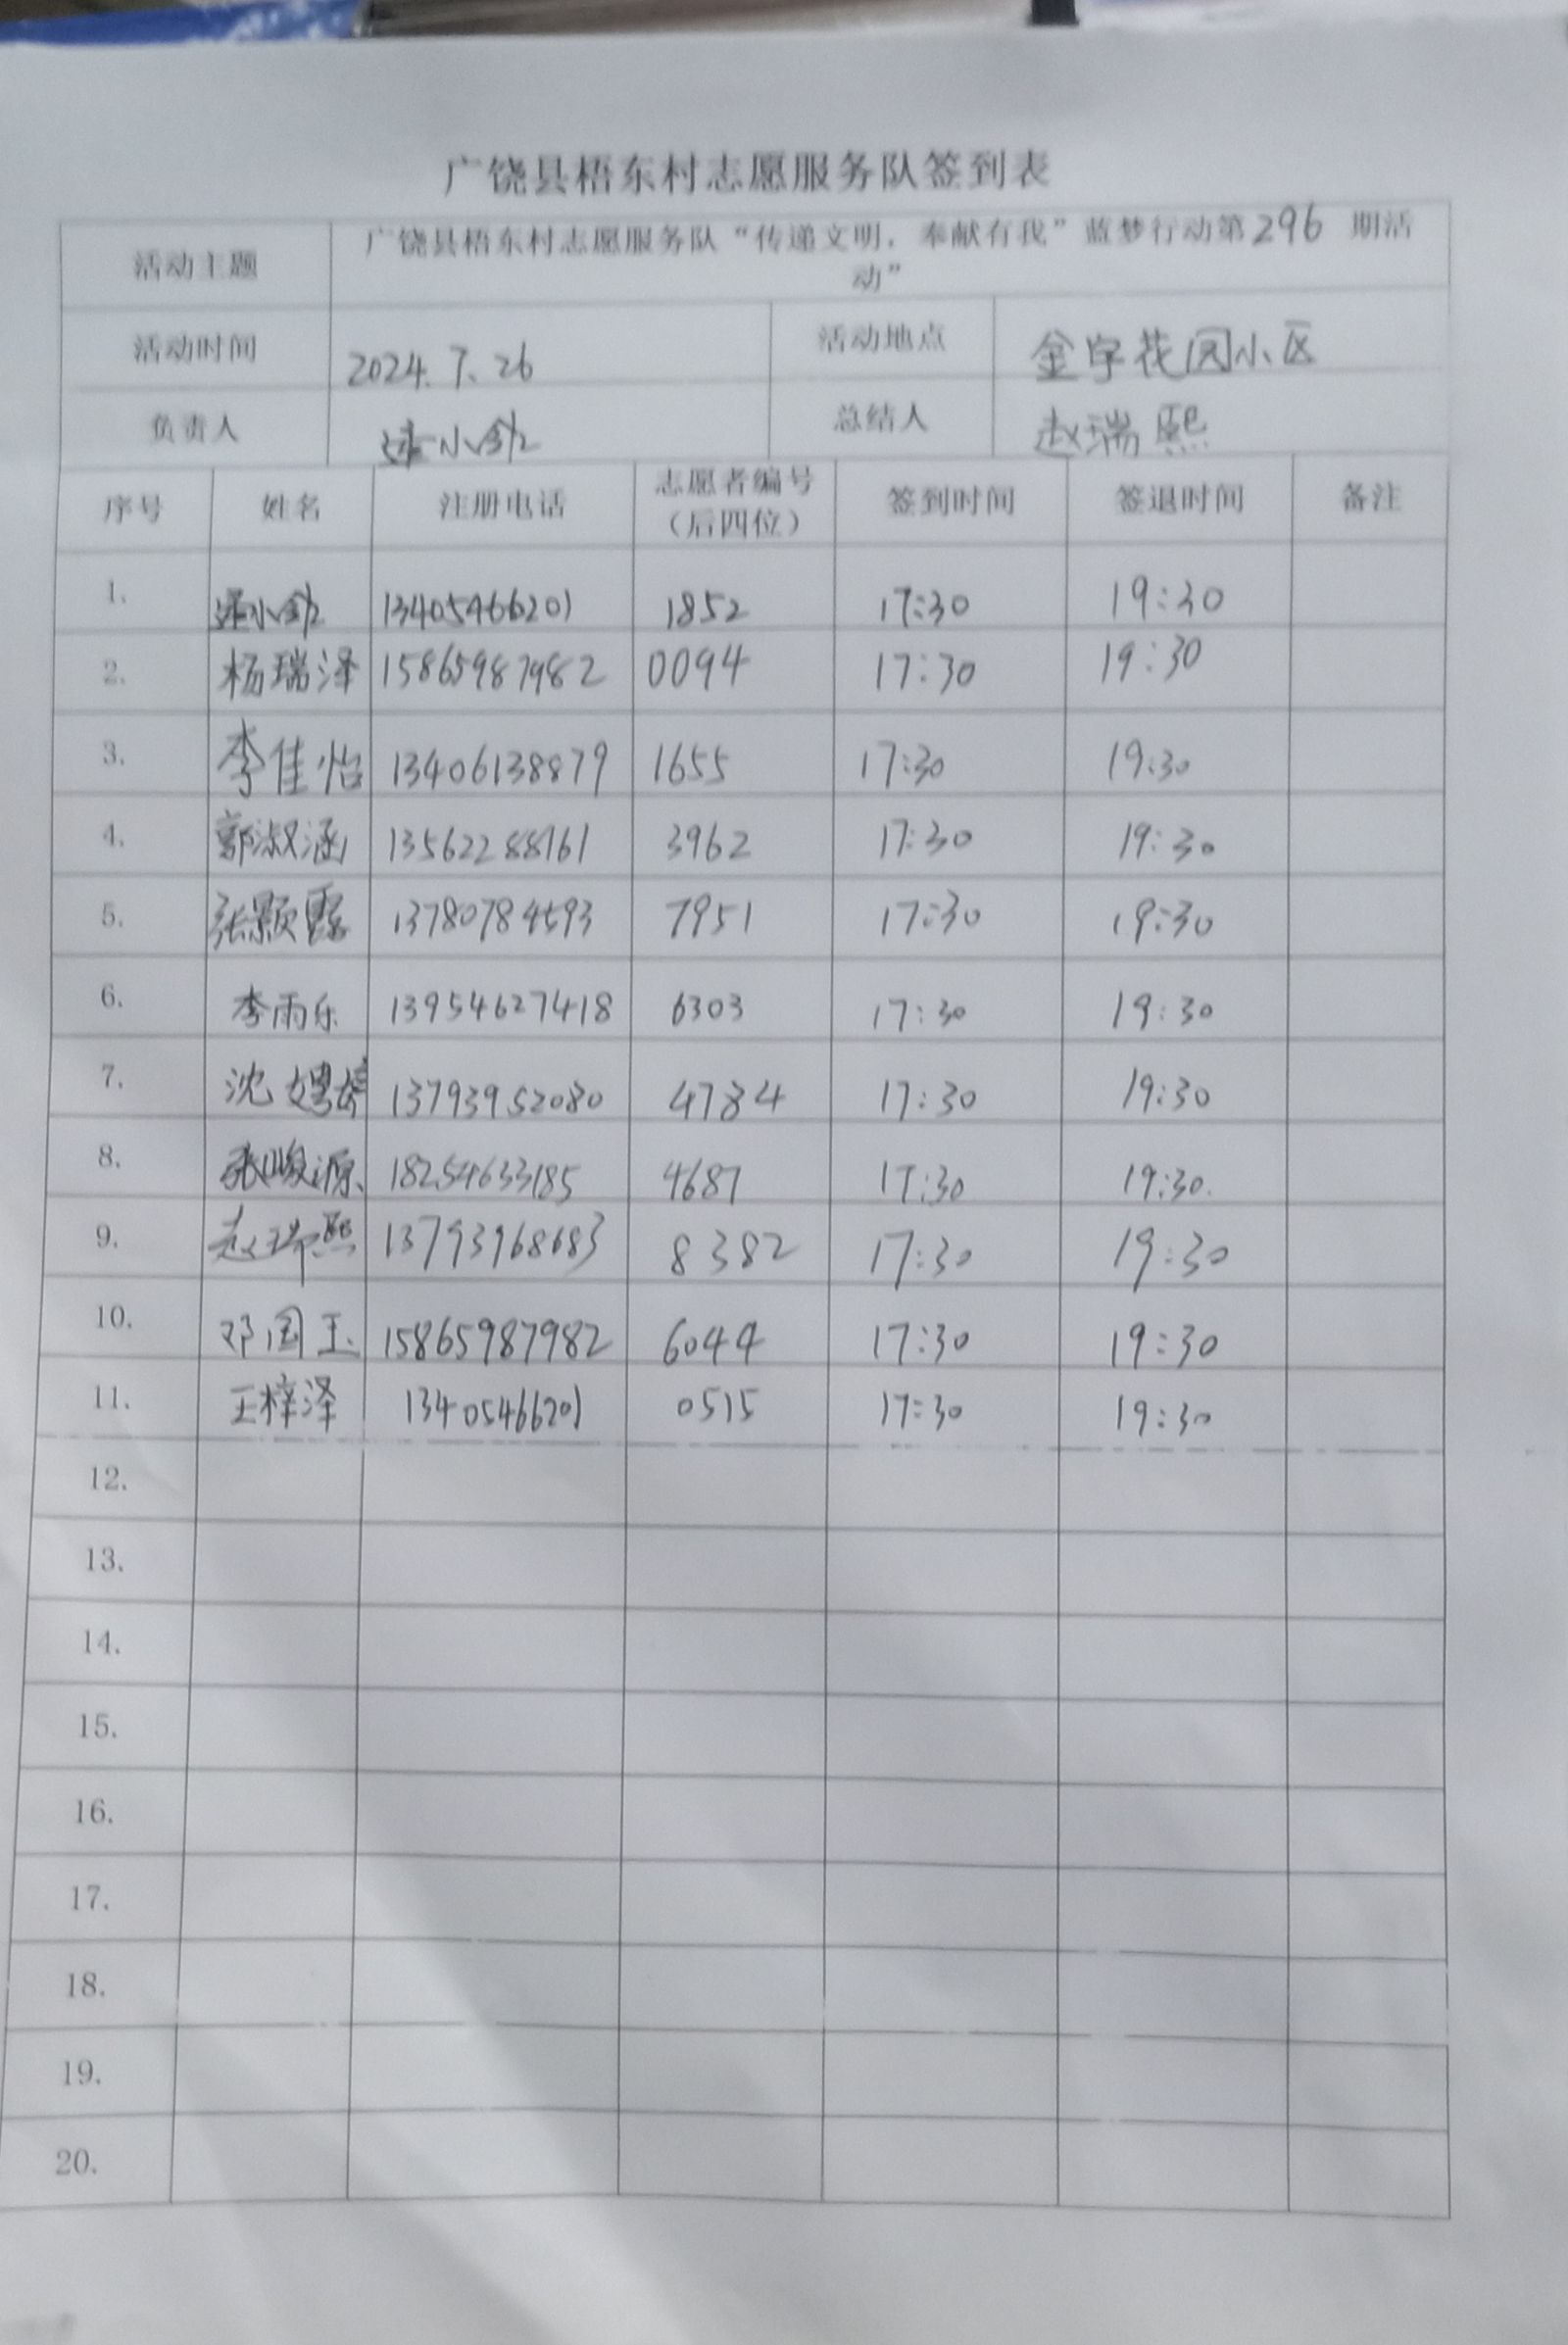 广饶县梧东村志愿服务队签到表
活动主题 广饶县梧东村志愿服务队“传递文明，奉献有我”蓝梦行动第296 期活
动”
活动时间 2024.7.26 活动地点 金宇花园小区
负责人 总结人 赵瑞熙
序号 姓名 注册电话 志愿者编号（后四位） 签到时间 签退时间 备注
1. 13405466201 1852 17:30 19:30
2. 杨瑞泽 15865987982 0094 17:30 19:30
3. 李佳怡 13406138879 1655 17:30 19:30
4. 郭淑涵 13562288761 3962 17:30 19:30
5. 13780784593 7951 17:30 19:30
6. 李雨乐 13954627418 6303 17:30 19:30
7. 沈 13793952080 4784 17:30 19:30
8. 张峻源 18254633185 4687 17:30 19:30.
9. 赵瑞熙 13793968683 8382 17:30 19:30
10. 邓国玉 15865987982 6044 17:30 19:30
11. 王梓泽 13405466201 0515 17:30 19:30
12.
13.
14.
15.
16.
17.
18.
19.
20.